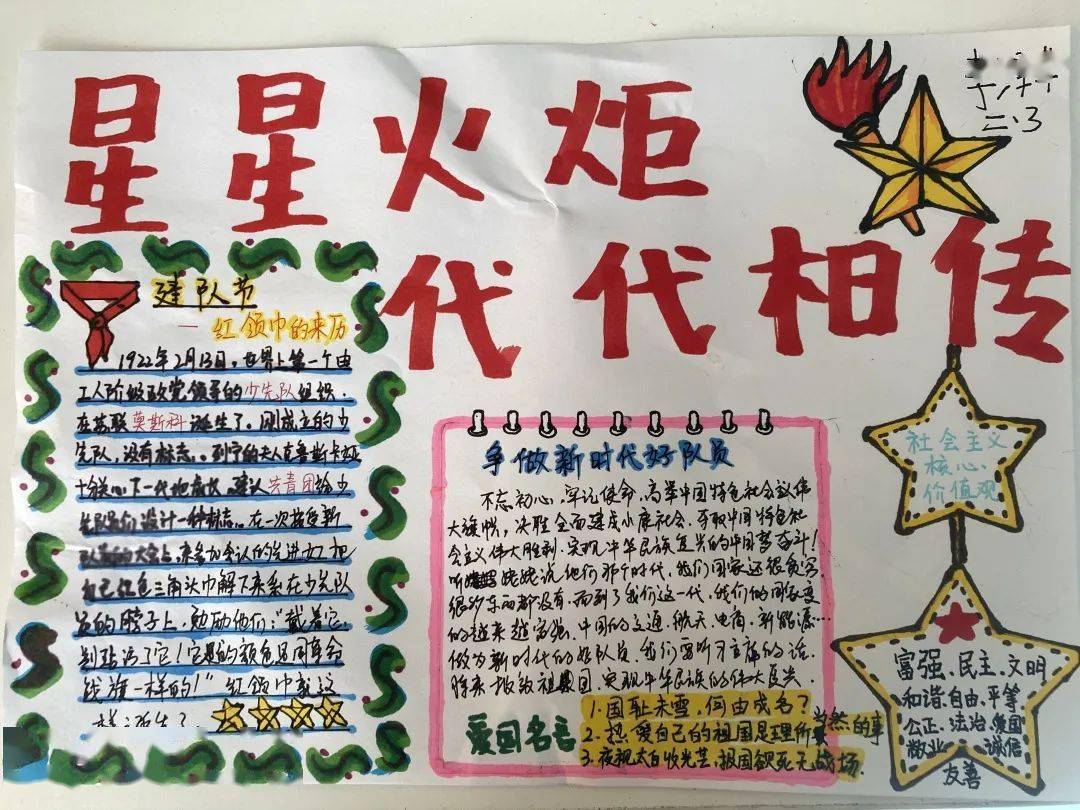 星星火炬
代代相传
二.3
建队节
—红领巾的来历
1922年2月13日,世界上第一个由
工人阶级政党领导的少先队组织.
在苏联莫斯科诞生了。刚成立的少
先队,没有标志。列宁的夫人克鲁斯卡娅
十分关心下一代地成长,建认共青团给少
先队员们设计一种标志。在一次接受新
队员的大会上,来参加会认的先进女工把
自己红色三角头巾解下来系在少先队
员的脖子上,勉励他们:"戴着它,
别玷污了它!它是的颜色是同革命
战旗一样的!"红领巾就这
样诞生了
争做新时代好队员
不忘初心,牢记使命,高举中国特色社会主义伟
大旗帜,决胜全面建成小康社会,夺取中国特色社
会主义伟大胜利,实现中华民族复兴的中国梦奋斗!
听姥姥说他们那个时代,我们国家还很贫穷,
很多东西都没有,而到了我们这一代,我们的国家变
的越来越富强,中国的交通、航天、电商、新能源…
做为新时代的好队员,我们要听习主席的话,
将来报效祖国,实现中华民族的伟大复兴
爱国名言
1.国耻未雪,何由成名?
2.热爱自己的祖国是理所当然的事
3.夜视太白收光芒,报国欲死无战场.
社会主义
核心
价值观
富强、民主、文明
和谐、自由、平等
公正、法治、爱国
敬业、诚信
友善